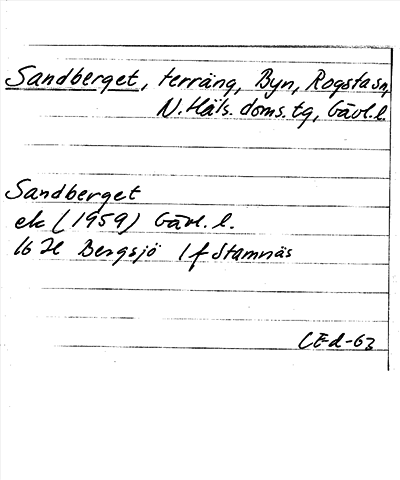 Sandberget, terräng, Byn, Rogsta sn,
N. Häls. doms. tg, Gävl. l.
Sandberget
ek (1959) Gävl. l.
16 H Bergsjö 1 f Stamnäs
CEd-63